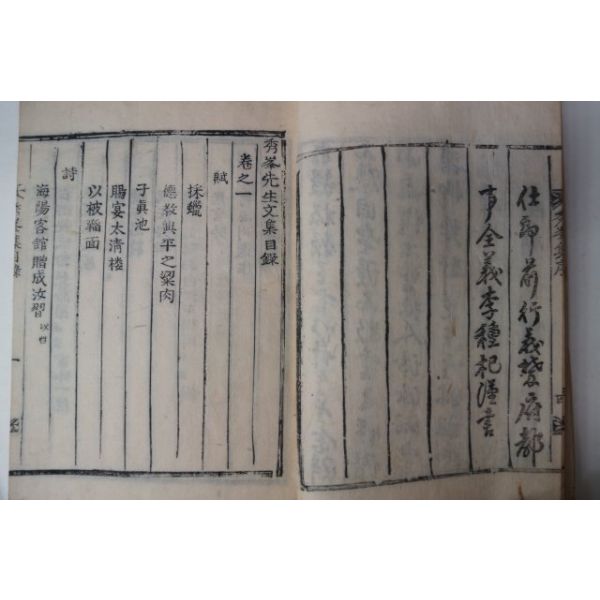 仕郎前行義禁府都
事全義李種杞謹書
秀峯先生文集目錄
卷之一
賦
採蠟
德教興平之粱肉
子眞池
賜宴太清楼
以被羃面
詩
海陽客館贈成汝習